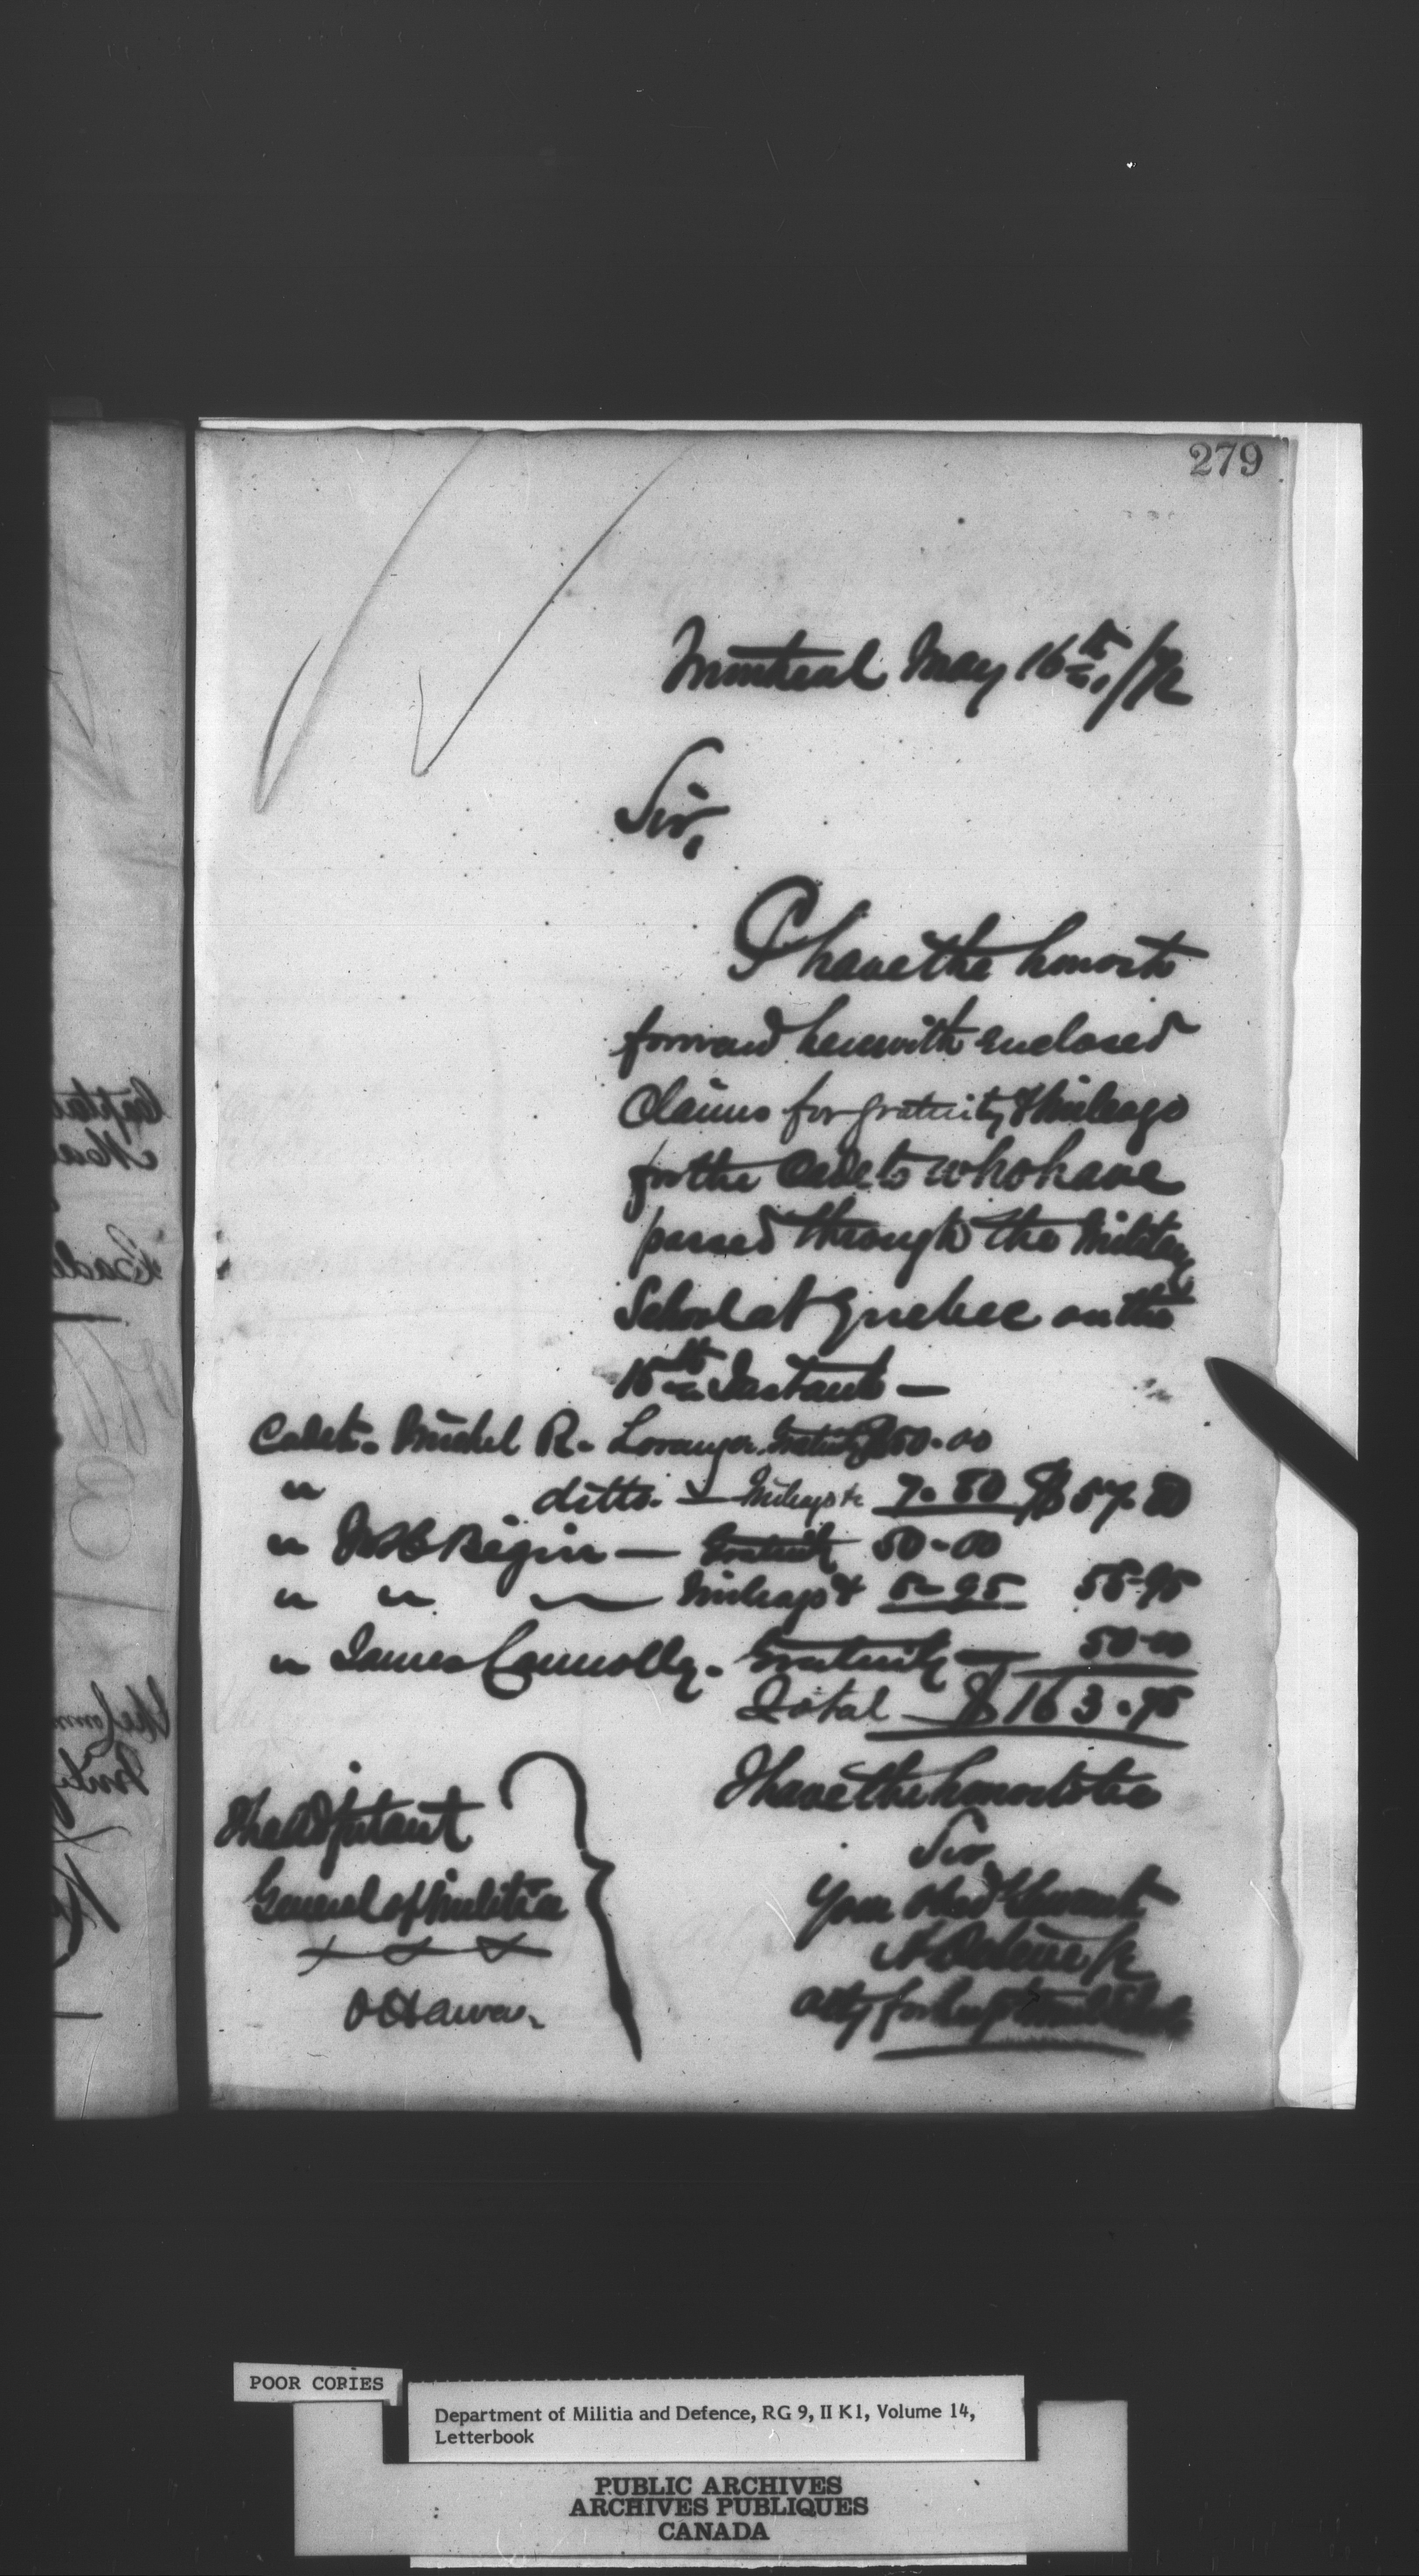 279
Montreal May 16th, /72
Sir,
I have the honor to
forward herewith enclosed
Claims for gratuity & mileage
for the Cadets who have
passed through the Military
School at Quebec on the
15th Instant —
Cadet. Michel R. Loranger Gratuity $50.00
" ditto. — Mileage &c 7.80 $57.80
" Bégin — Gratuity 50-00
" " — Mileage & 5-95 55-95
" James Connolly. Gratuity — 50-00
Total $163.75
I have the honor to be
Sir
Your Obedt Servant
The Adjutant
General of Militia
Ottawa.
POOR COPIES
Department of Militia and Defence, RG 9, II K 1, Volume 14,
Letterbook
PUBLIC ARCHIVES
ARCHIVES PUBLIQUES
CANADA